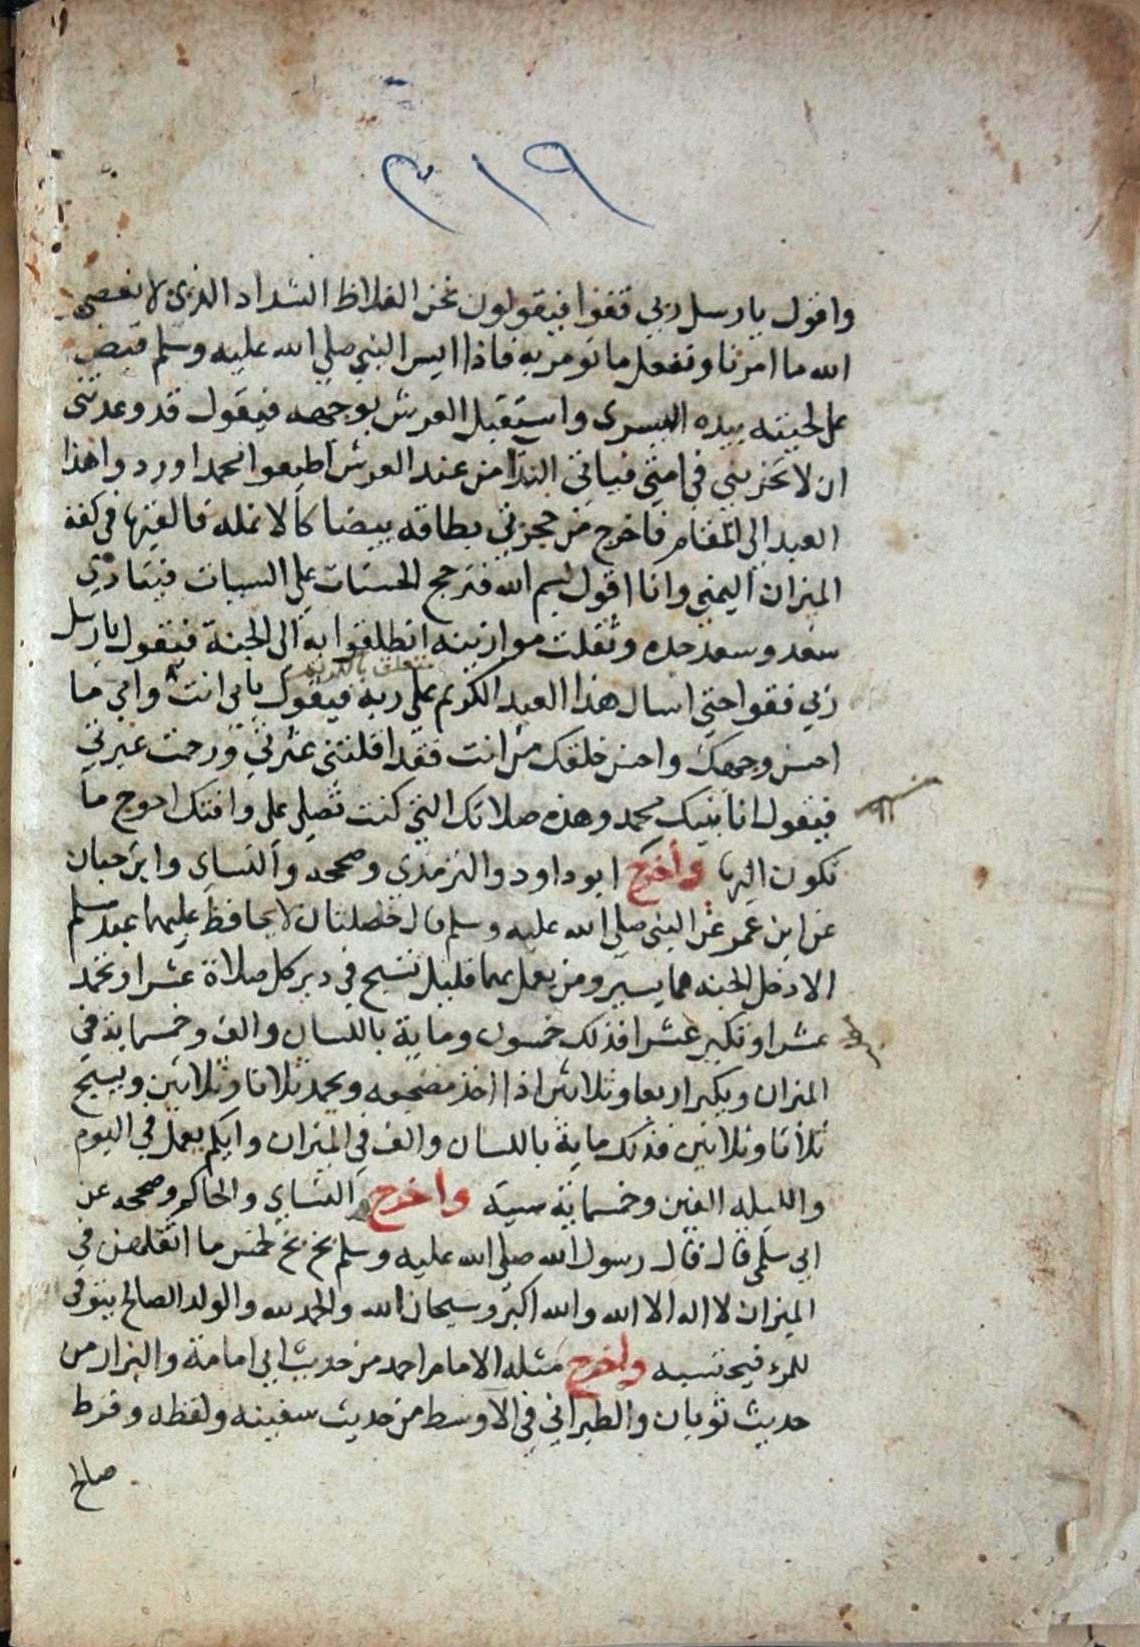 ٣١٩
واقول يا رسل ربي قفوا فيقولون نحن الغلاظ الشداد الذين لا نعصى
الله ما امرنا ونفعل ما نومر به فاذا ايس النبي صلي الله عليه وسلم قبض
على لحيته بيده اليسرى واستقبل العرش بوجهه فيقول قد وعدتني
ان لا تخزيني في امتي فياتي الندا من عند العرش اطيعوا محمدا وردوا هذا
العبد الي المقام فاخرج من حجزتي بطاقه بيضا كالانمله فالقيها في كفة
الميزان اليمني وانا اقول بسم الله فترجح الحسنات علي السيات فينادي
سعد وسعد جده وثقلت موازينه انطلقوا به الى الجنة فيقول يا رسل
ربي فقوا حتي اسال هذا العبد الكريم على ربه فيقول بابي انت وامي ما
احسن وجهك واحسن خلقك من انت فقد اقلتني عثرتي ورحمت عبرتي
فيقول انا نبيك محمد وهذه صلاتك التي كنت تصلي علي وافتك احوج ما
تكون اليها واخرج ابو داود والترمذى وصححه والنساي وابن حبان
عن ابن عمر عن النبي صلي الله عليه وسلم قال خصلتان لا يحافظ عليهما عبد مسلم
الا دخل الجنه هما يسير ومن يعمل بهما قليل تسبح في دبر كل صلاة عشرا وتحمد
عشرا وتكبر عشرا فذلك خمسون وماية باللسان والف وخمسماية في
الميزان ويكبر اربعا وثلاثين اذا اخذ مضجعه ويحمد ثلاثا وثلاثين ويسبح
ثلاثا وثلاثين فذلك ماية باللسان والف في الميزان وايكم يعمل في اليوم
والليله الفين وخمسماية سية واخرج النساي والحاكم وصححه عن
ابي سلمي قال قال رسول الله صلي الله عليه وسلم بخ بخ لخمس ما اثقلهن في
الميزان لا اله الا الله والله اكبر وسبحان الله والحمد لله والولد الصالح يتوفي
للمرء فيحتسبه واخرج مثله الامام احمد من حديث ابي امامة والبزار من
حديث ثوبان والطبراني في الاوسط من حديث سفينه ولفظه وفرط
صالح